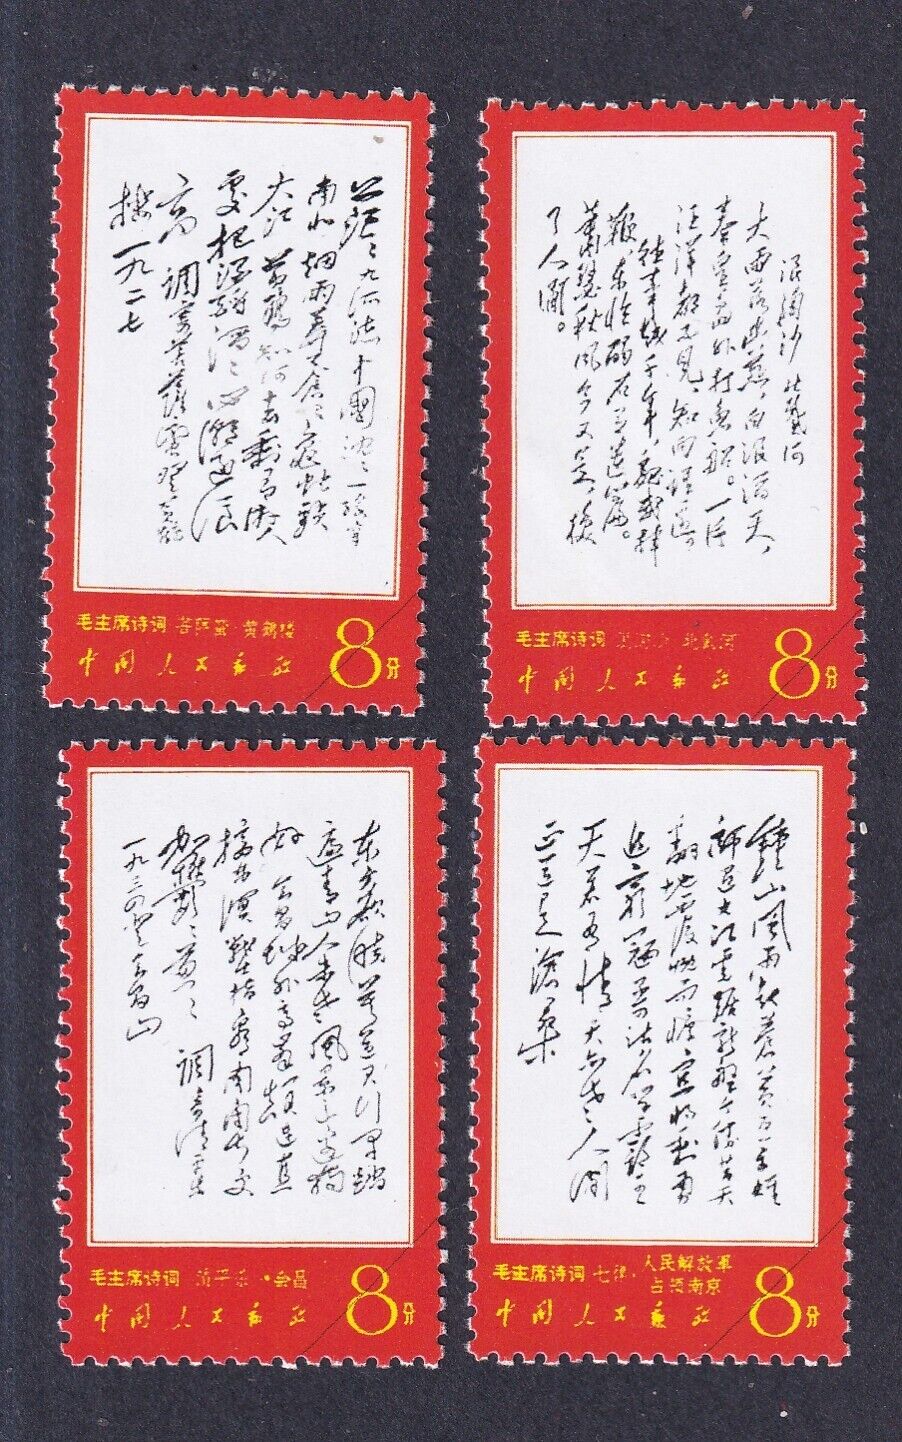 茫〻九派流中國沈〻一線穿
南北烟雨莽蒼〻龜蛇鎖
大江 黄鶴知何去剩有遊人
處把酒酹滔〻心潮逐浪
高 調寄菩薩蠻登黄鶴
樓一九二七
毛主席诗词 菩萨蛮·黄鹤楼
中国人民邮政
8分
浪淘沙 北戴河
大雨落幽燕,白浪滔天,
秦皇島外打魚船。一片
汪洋都不見,知向誰邊
往事越千年,魏武揮
鞭,东临碣石有遗篇。
萧瑟秋风今又是,换
了人间。
毛主席诗词 浪淘沙·北戴河
中国人民邮政
8分
东方欲晓莫道君行早踏
遍青山人未老〻风景这边独
好 会昌城外高峯颠连直
接东溟戰士指看南粤更
加鬱〻葱〻 調寄清平乐
一九三四登会昌山
毛主席诗词 清平乐·会昌
中国人民邮政
8分
鐘山風雨起蒼黄百万雄
師过大江虎踞龍盤今勝昔天
翻地覆慨而慷宜将剩勇
追穷寇不可沽名学霸王
天若有情天亦老〻人间
正道是滄桑
毛主席诗词 七律·人民解放军
占领南京
中国人民邮政
8分